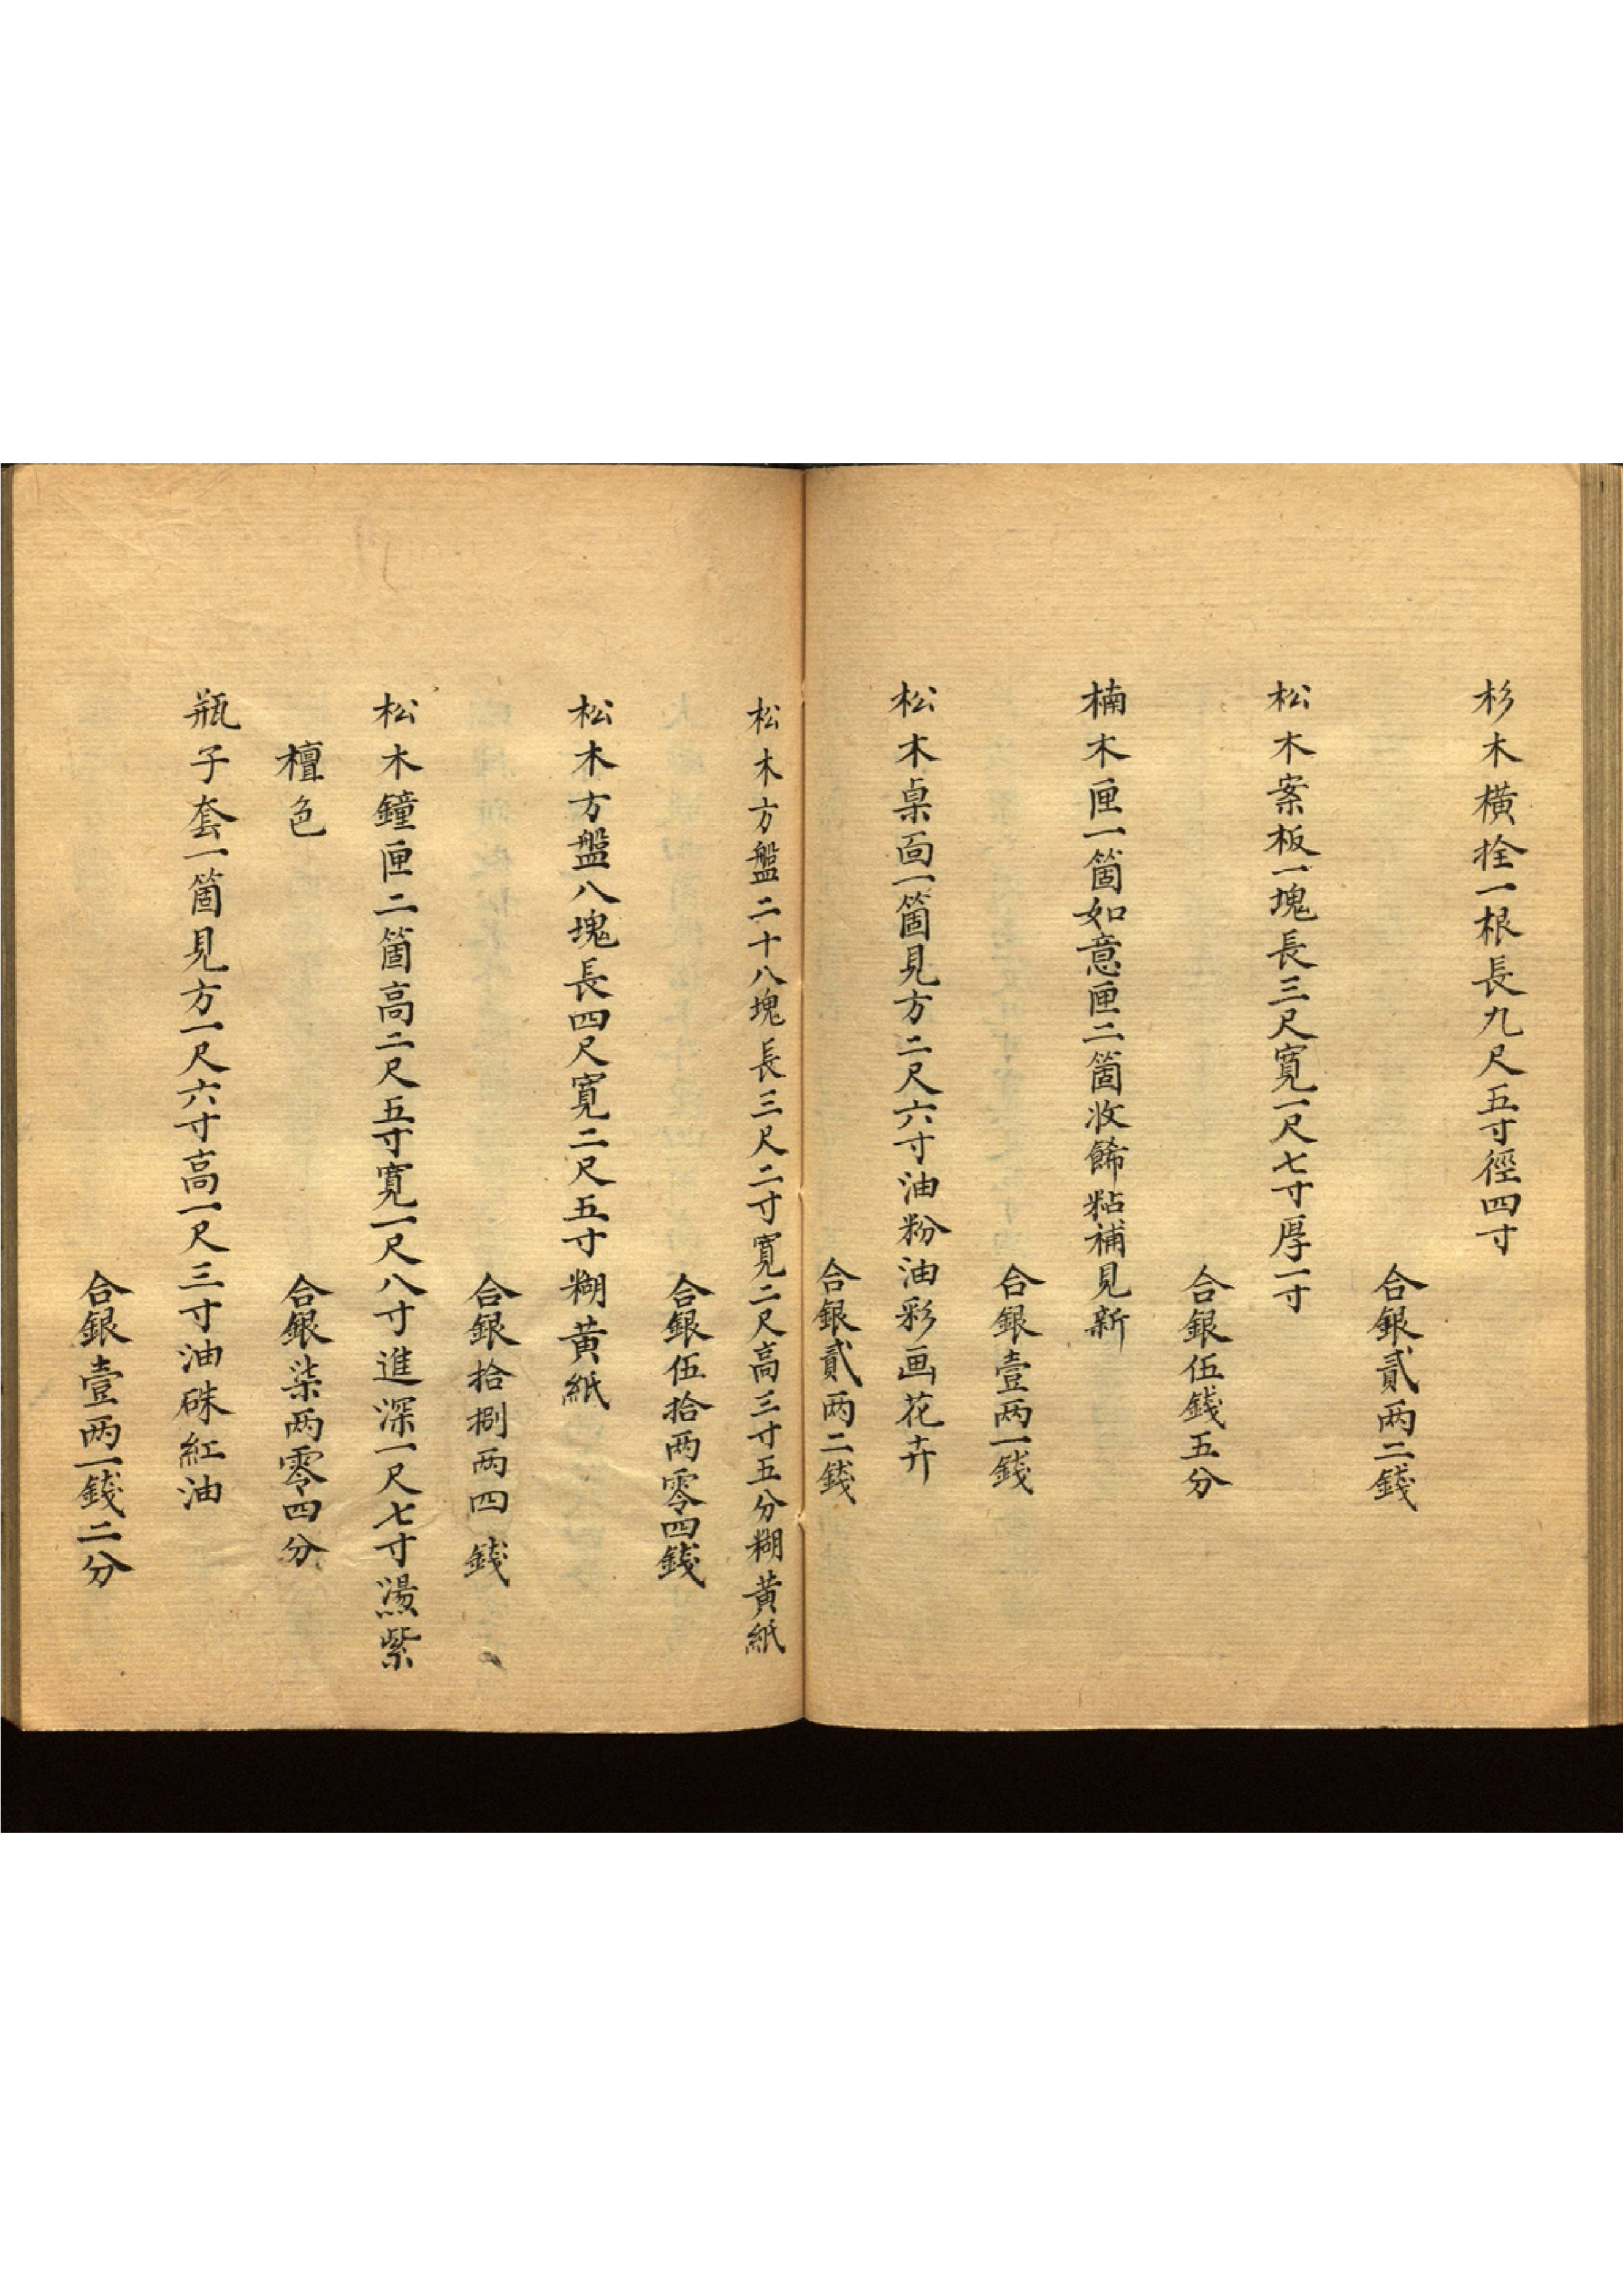 杉木橫拴一根長九尺五寸徑四寸
合銀貳两二錢
松木案板一塊長三尺寬一尺七寸厚一寸
合銀伍錢五分
楠木匣一箇如意匣二箇收餙粘補見新
合銀壹两一錢
松木桌面一箇見方二尺六寸油粉油彩画花卉
合銀貳两二錢
松木方盤二十八塊長三尺二寸寬二尺高三寸五分糊黄紙
合銀伍拾两零四錢
松木方盤八塊長四尺寬二尺五寸糊黄紙
合銀拾捌两四錢
松木鐘匣二箇高二尺五寸寬一尺八寸進深一尺七寸燙紫
檀色
合銀柒两零四分
瓶子套一箇見方一尺六寸高一尺三寸油硃紅油
合銀壹两一錢二分